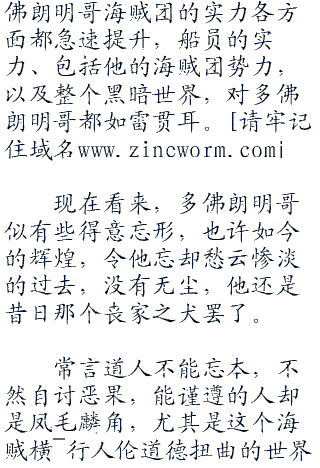 佛朗明哥海贼团的实力各方
面都急速提升，船员的实
力、包括他的海贼团势力，
以及整个黑暗世界，对多佛
朗明哥都如雷贯耳。[请牢记
住域名www.zincworm.com|
现在看来，多佛朗明哥
似有些得意忘形，也许如今
的辉煌，令他忘却愁云惨淡
的过去，没有无尘，他还是
昔日那个丧家之犬罢了。
常言道人不能忘本，不
然自讨恶果，能谨遵的人却
是凤毛麟角，尤其是这个海
贼横¯行人伦道德扭曲的世界